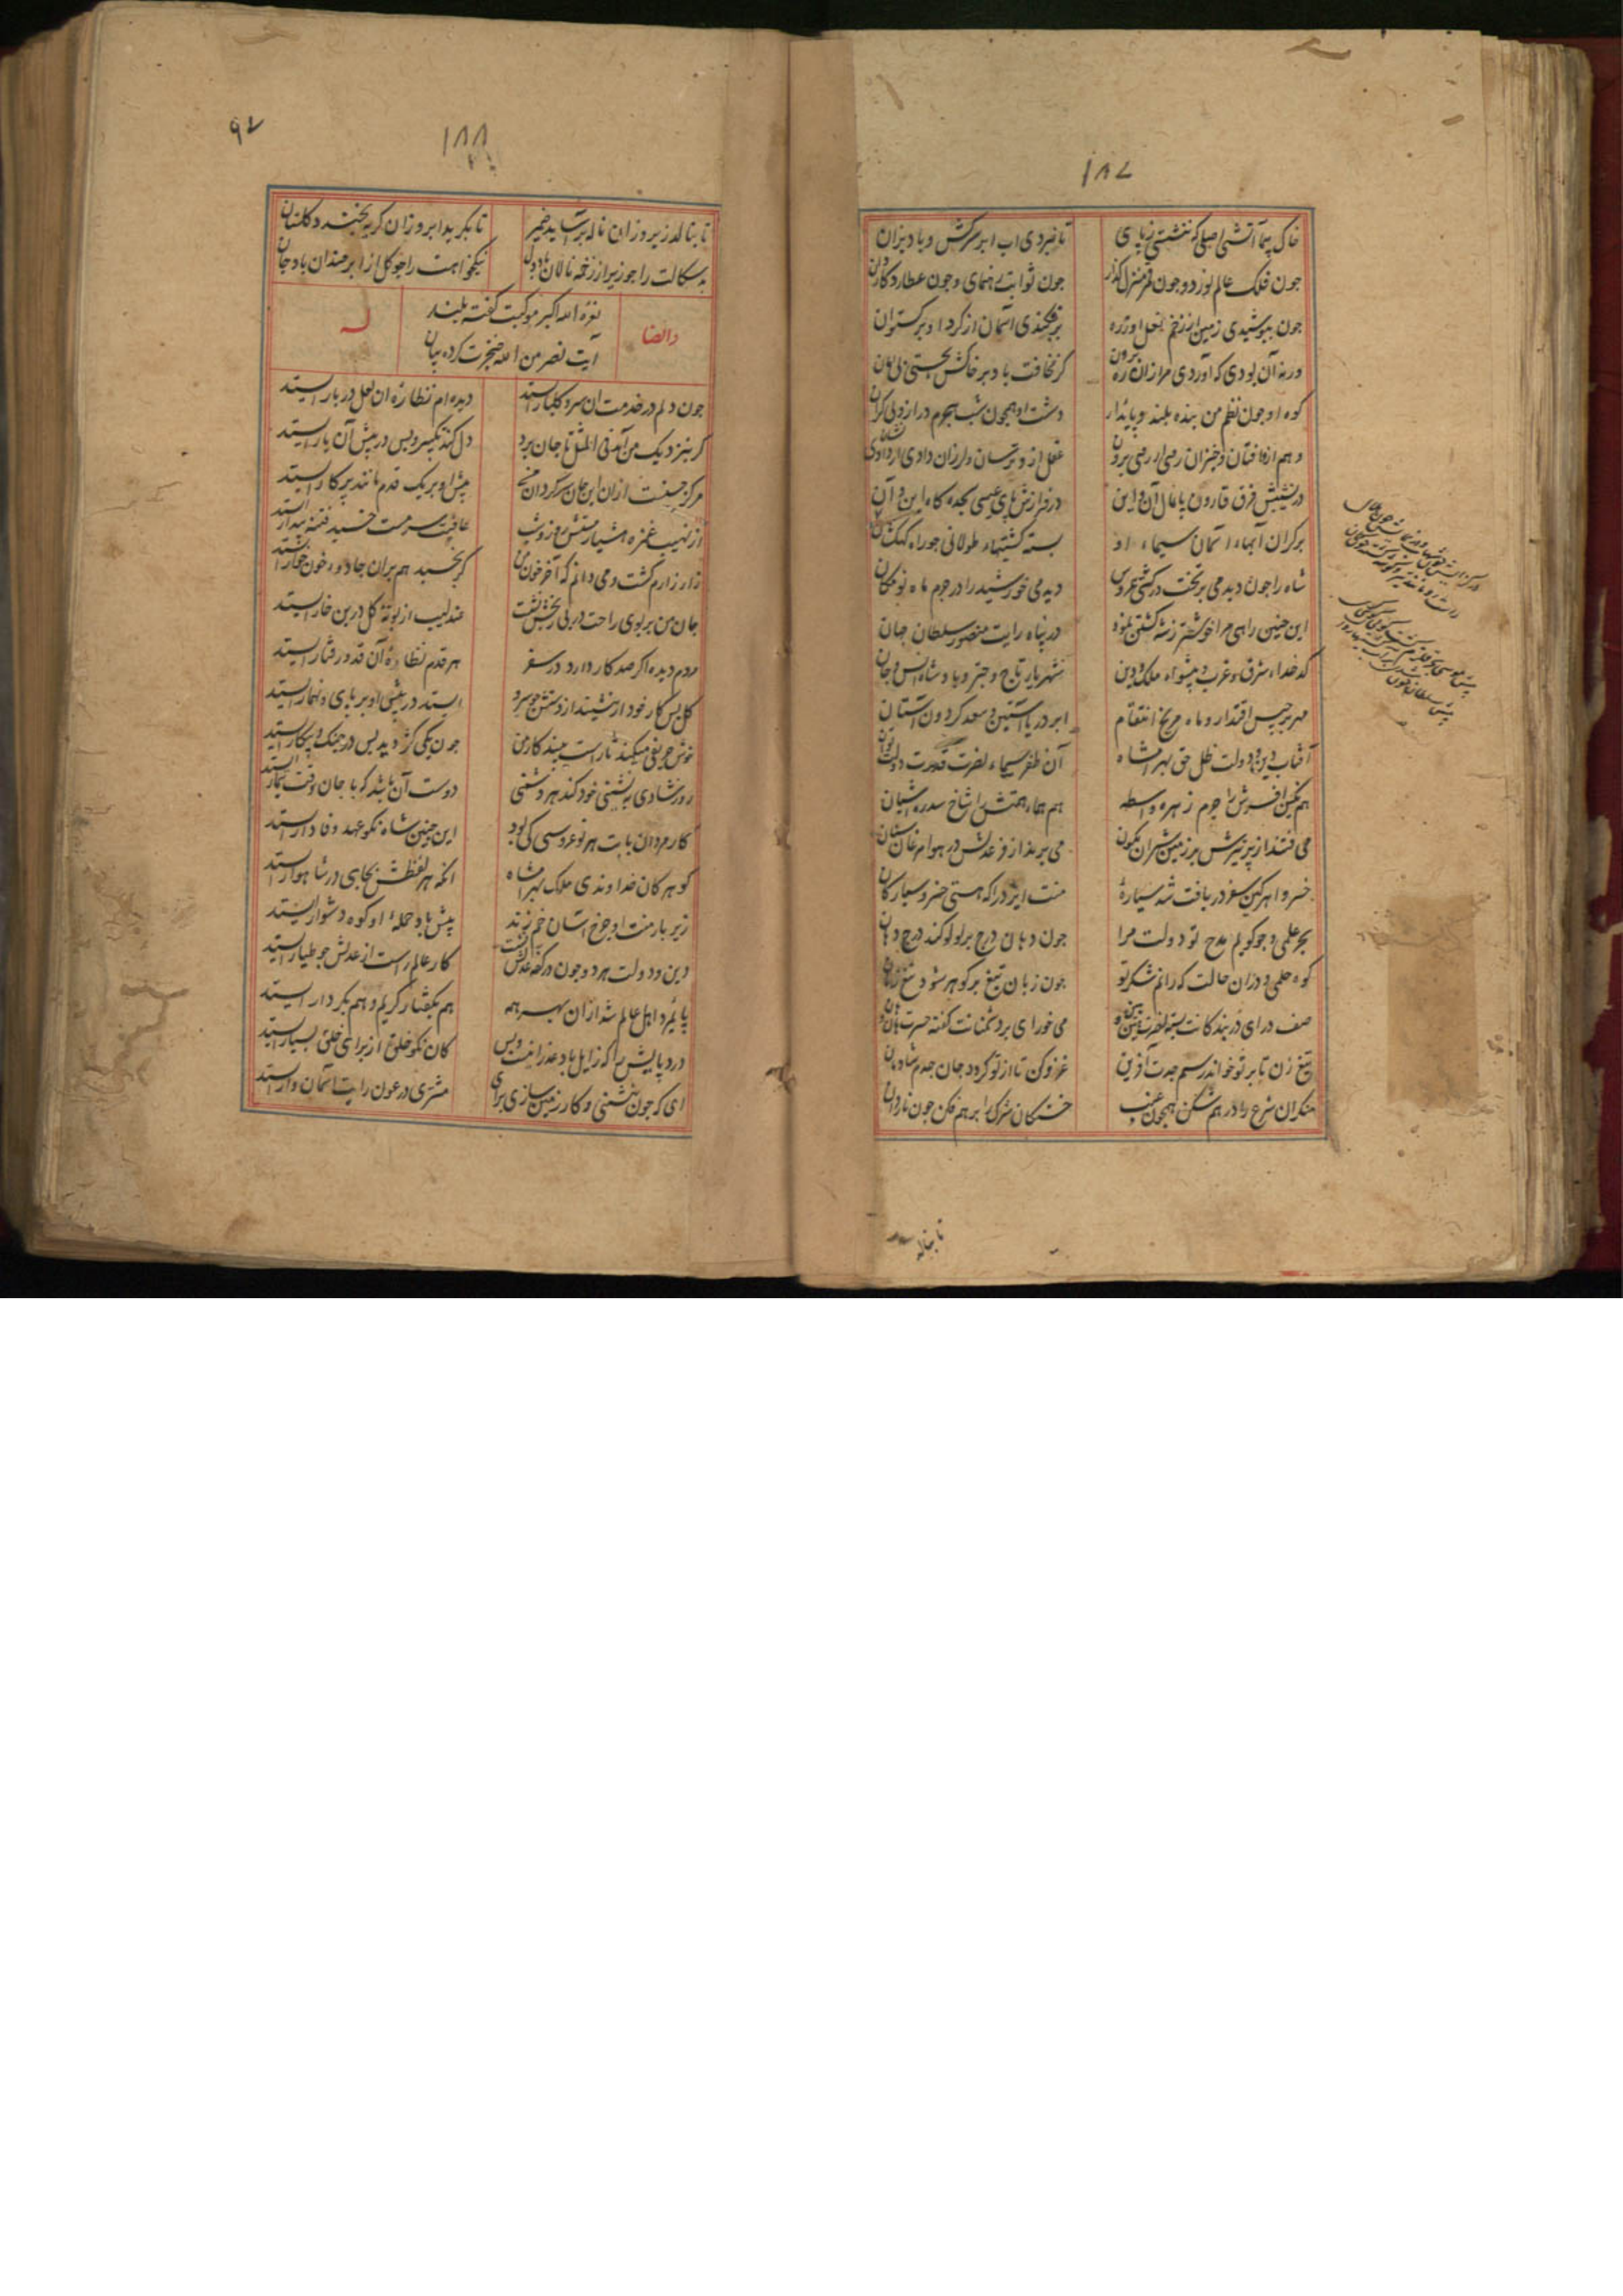 ۱۸۷
خاک پیما آتشی اصلی که ننشستی ز پای
تا نبردی اب ابر سرکش و باد بزان
جون فلک عالم نورد و جون قمر منزل گذار
جون ثوابت رهنمای و جون عطارد کاردان
جون بپوشیدی زمین از زخم نعل او زره
برفکندی آسمان از کرد او برکستوان
ورنه آن بودی که آوردی مرا زان ره برون
کر نخافت باد بر خاکش بجستی
کوه او جون نظم من بنده بلند و پایدار
دشت او همچون شب هجرم دراز و بی کران
و هم ازو افتان و خیزان رفتی ار رفتی برون
عقل ازو ترسان و لرزان دادی ار دادی نشان
در نشیبش فرق قارون پایمال آن و این
در فرازش پای عیسی سجده گاه این و آن
بر کران آبهاء آسمان سیماء او
بسته کشتیهاء طولانی جو راه کهکشان
شاه را جون دیدمی بر تخت در کشتی عروس
دیدمی خورشید را در جرم ماه نو مکان
این جنین راهی مرا خوشتر ز ره کشتن نمود
در پناه رایت منصور سلطان جهان
کدخداء شرق و غرب و پیشواء ملک و دین
شهریار تاج و جتر و پادشاه انس و جان
مهر برجیس اقتدار و ماه مریخ انتقام
ابر دریا آستین و سعد کردون آستان
آفتاب دین و دولت ظل حق بهرامشاه
آن ظفر سیماء نصرت قدرت دولت توان
هم نکین افسرش را جرم زهره واسطه
هم هماء همتش را شاخ سدره آشیان
می فتند از پر تیرش بر زمین شیران نکون
می برند از فر عدلش در هوا مرغان ستان
خسروا هر کین سفر دریافت شد سیارهٔ
منت ایزد را که هستی خسرو سیارکان
بحر علمی و جو کویم مدح تو دولت مرا
جون دهان درج بر لولو کند درج دهان
کوه حلمی و دران حالت که رانم شکر تو
جون زبان تیغ بر کوهر شود تیغ زبان
صف درای در بندکانت بسته نصرت
می خورای بر دشمنانت کفته حسرت
تیغ زن تا بر تو خواند رسم جدت آفرین
غزو کن تا از تو کردد جان جدم شادمان
منکران شرع را در هم شکن همجون عنب
خستکان شرک را بر هم فکن جون ناردان
تا بنالد
۱۸۸
۹۲
تا بنالد زیر و زان ناله بر آساید ضمیر
تا بکرید ابر و زان کریه بخندد کلستان
بد سکالت را جو زیر از زخمه نالان باد دل
نیکخواهت را جو کل از ابر خندان باد جان
نعرهٔ الله اکبر موکبت کفته بلند
آیت نصر من الله خنجرت کرده بیان
وایضا
له
جون دلم در خدمت ان سرو کلبار ایستد
دیده ام نظارهٔ ان لعل دربار ایستد
کر بنزدیک من آید فی المثل تا جان برد
دل کند یکسر و پس در پیش آن یار ایستد
مرکز حسنست ازان این جان سرکردان من
پیش او بر یک قدم مانند پرکار ایستد
از نهیب غمزه هشیار مستش روز و شب
عافیت سرمست خسبد فتنه بیدار ایستد
زار زارم کشت و می دانم که آخر خون من
کر بخسبد هم بران جادوء خونخوار ایستد
جان من بر بوی راحت در پی رنجش نشست
عندلیب از بوتهٔ کل در بن خار ایستد
مردم دیده اکر صد کار دارد در سفر
هر قدم نظارهٔ آن قد و رفتار ایستد
کل پس کار خود ار نشیند از دستش جو سرو
ایستد در پیش او بر پای و ناچار ایستد
خوش حریفی میکند تا راست بیند کار من
جون یکی کژ دید پس در جنک و پیکار ایستد
روز شادی به نشینی خود کند هر دشمنی
دوست آن باشد که با جان وقت تیمار ایستد
کار مردان بابت هر نوعروسی کی بود
این جنین شاه نکو عهد وفادار ایستد
کوهر کان خداوندی ملک بهرامشاه
انکه هر لفظش بجای در شاهوار ایستد
زیر بار منت او جرخ اسان خم زند
پیش باد حملهٔ او کوه دشوار ایستد
دین و دولت هر دو جون در کفه عدلش نشست
کار عالم راست از عدلش جو طیار ایستد
پایمرد اهل عالم شد ازان بهر همه
هم بکفتار کریم و هم بکردار ایستد
درد پایش را که زایل باد عذر اینست و بس
کان نکو خلق از برای خلق بسیار ایستد
ای که جون بنشینی و کار زمین سازی برای
مشتری در عون رایت آسمان وار ایستد